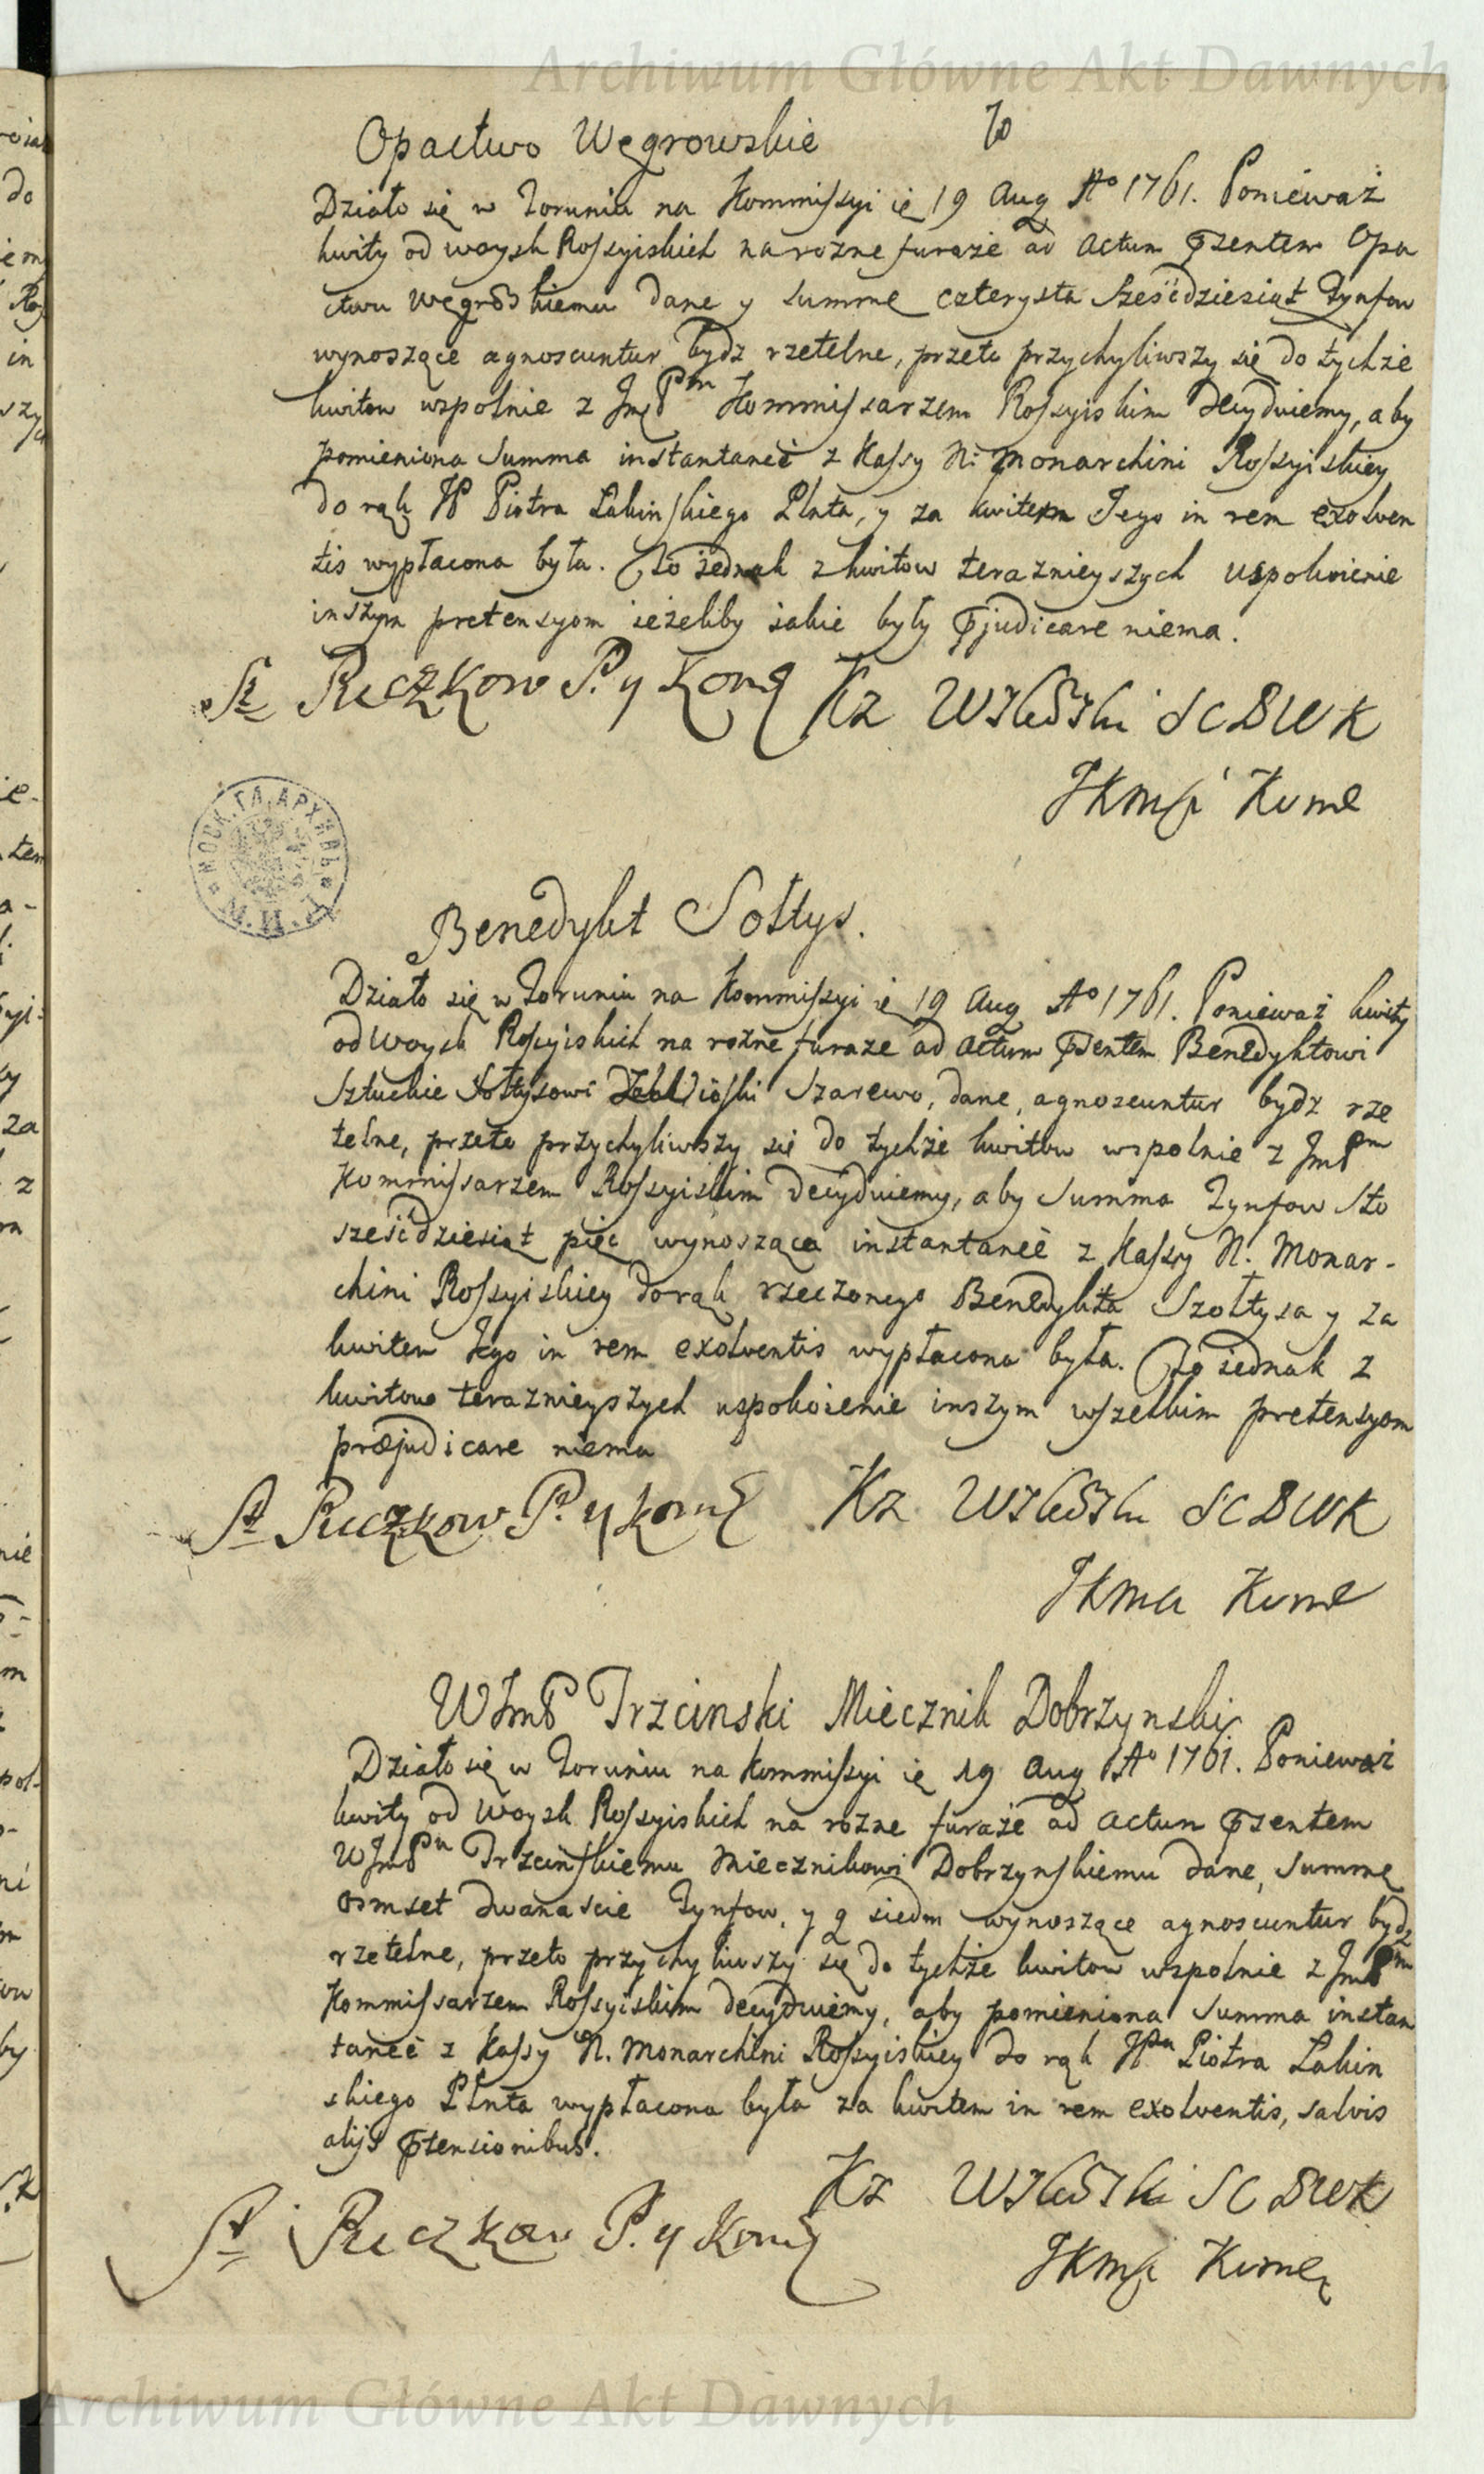 Archiwum Główne Akt Dawnych
70
Opactwo Węgrowskie
Działo się w Toruniu na Kommissyi ię 19 Aug Aº 1761. Ponieważ
kwity od woysk Rossyiskich na rozne furaże ad Actum Pzentem Opa
ctwu Węgrowskiemu dane y summę czterysta sześćdziesiąt Tynfow
wynoszące agnoscuntur bydz rzetelne, przeto przychyliwszy się do tychże
kwitow wspolnie z JmP m Kommissarzem Rossyiskim decyduiemy, aby
pomieniona summa instantaneè z Kassy N: Monarchini Rossyiskiey
do rąk JP Piotra Łakinskiego Plnta, y za kwitem Jego in rem exolven
tis wypłacona była. To iednak z kwitow teraznieyszych uspokoienie
inszym pretensyom ieżeliby iakie były Pjudicare niema.
St Ruczkow P. y Komę Kz Wzleski SCBWK
JKMsi Kome
МОСК. ГЛ. АРХИВЪ М.И.Д.
Benedykt Sołtys.
Działo się w Toruniu na Kommissyi ię 19 Aug Aº 1761. Ponieważ kwity
od Woysk Rossyiskich na rozne furaże ad Actum Pzentem Benedyktowi
Sztuckie Sołtysowi Szarewo, dane, agnoscuntur bydz rze
telne, przeto przychyliwszy się do tychże kwitow wspolnie z JmP m
Kommissarzem Rossyiskim decyduiemy, aby summa Tynfow sto
sześćdziesiąt pięć wynosząca instantaneè z Kassy N. Monar-
chini Rossyiskiey do rąk rzeczonego Benedykta Szołtysa y za
kwitem Jego in rem exolventis wypłacona była. To iednak z
kwitow teraznieyszych uspokoienie inszym wszelkim pretensyom
præjudicare niema
St Ruczkow P. y Komę Kz Wzleski SCBWK
JKMci Kome
WJmP Trzcinski Miecznik Dobrzynski
Działo się w Toruniu na Kommissyi ię 19 Aug Aº 1761. Ponieważ
kwity od Woysk Rossyiskich na rozne furaże ad Actum Pzentem
WJmP u Trzcinskiemu Miecznikowi Dobrzynskiemu dane, summę
osmset dwanascie Tynfow, y g siedm wynoszące agnoscuntur bydz
rzetelne, przeto przychyliwszy się do tychże kwitow wspolnie z JmP m
Kommissarzem Rossyiskim decyduiemy, aby pomieniona summa instan
taneè z Kassy N. Monarchini Rossyiskiey do rąk JP a Piotra Łakin
skiego Plnta wypłacona była za kwitem in rem exolventis, salvis
alijs Ptensionibus.
Kz Wzleski SCBWK
St Ruczkow P. y Komę
JKMsi Komę
Archiwum Główne Akt Dawnych